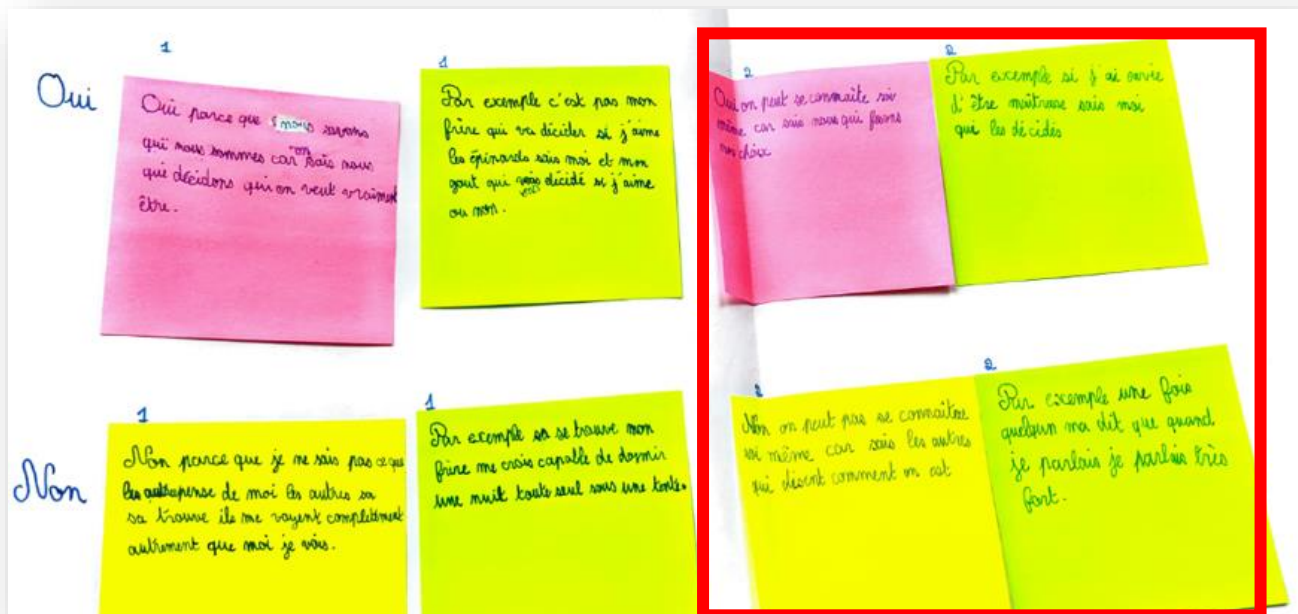 1
1
2
2
Oui
Oui parce que nous savons
qui nous sommes car sais nous
on
qui décidons qui on veut vraiment
être.
Par exemple c'est pas mon
frère qui va décider si j'aime
les épinards sais moi et mon
gout qui vons décidé si j'aime
ou non.
Oui on peut se connaite soi
même car sais nous qui fesons
nos choix
Par exemple si j'ai envie
d'être maîtresse sais moi
qui les décidés
1
1
2
2
Non
Non parce que je ne sais pas ce que
les autre pense de moi les autres sa
sa trouve ils me voyent complètment
autrement que moi je vois.
Par exemple sa se trouve mon
frère me crois capable de dormir
une nuit toute seul sous une tente.
Non on peut pas se connaitre
soi même car sais les autres
qui disent comment on est
Par excemple une fois
quelqun ma dit que quand
je parlais je parlais très
fort.